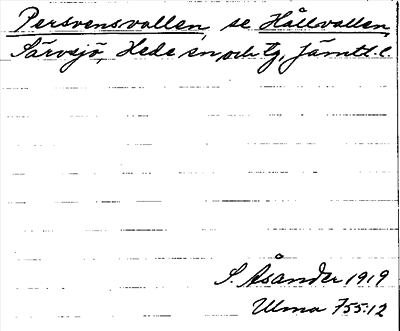 Persvensvallen, se Hållvallen,
Särvsjö, Hede sn och tg, Jämtl. l.
S. Åsander 1919
Ulma 755:12